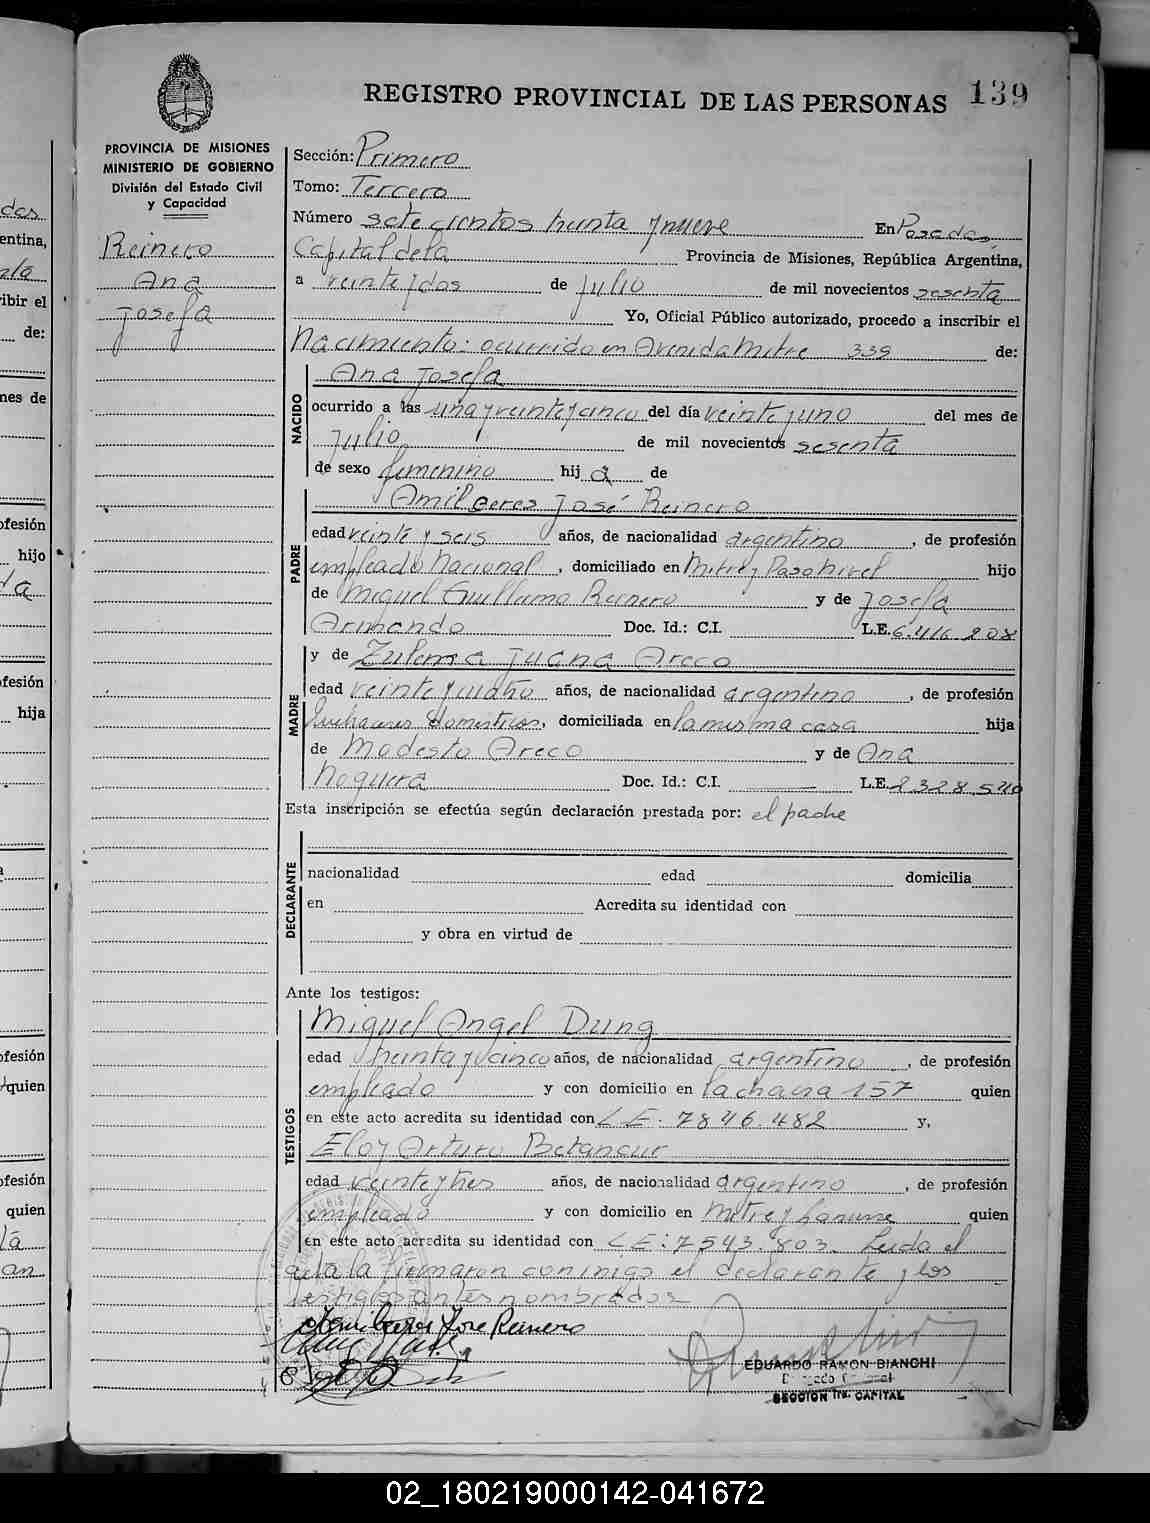 REGISTRO PROVINCIAL DE LAS PERSONAS 139
PROVINCIA DE MISIONES
MINISTERIO DE GOBIERNO
División del Estado Civil
y Capacidad
Reinero
Ana
Josefa
Sección: Primero
Tomo: Tercero
Número setecientos treinta y nueve En Posadas,
Capital de la Provincia de Misiones, República Argentina,
a veinte y dos de Julio de mil novecientos sesenta
Yo, Oficial Público autorizado, procedo a inscribir el
Nacimiento: ocurrido en Avenida Mitre 339 de:
NACIDO
Ana Josefa
ocurrido a las una y veinte y cinco del día veinte y uno del mes de
Julio de mil novecientos sesenta
de sexo femenino hij a de
PADRE
Amilcares José Reinero
edad veinte y seis años, de nacionalidad argentino, de profesión
empleado Nacional, domiciliado en Mitre y Paso Nivel hijo
de Miguel Guillermo Reinero y de Josefa
Armando Doc. Id.: C.I. L.E. 6.416.208
MADRE
y de Zulema Juana Areco
edad veinte y cuatro años, de nacionalidad argentino, de profesión
Quehaceres Domésticos, domiciliada en la misma casa hija
de Modesto Areco y de Ana
Noguera Doc. Id.: C.I. L.E. 2328.540
Esta inscripción se efectúa según declaración prestada por: el padre
DECLARANTE
nacionalidad edad domicilia
en Acredita su identidad con
y obra en virtud de
Ante los testigos:
TESTIGOS
Miguel Angel Dung
edad treinta y cinco años, de nacionalidad argentino, de profesión
empleado y con domicilio en la chacra 157 quien
en este acto acredita su identidad con L.E. 7846.482 y,
Eloy Arturo Betancur
edad veinte y tres años, de nacionalidad argentino, de profesión
empleado y con domicilio en Mitre y quien
en este acto acredita su identidad con L.E: 7543.803. Leida el
acta la firmaron conmigo el declarante y los
testigos antes nombrados
Amilcares Jose Reinero
EDUARDO RAMON BIANCHI
SECCION 1ra. CAPITAL
02_180219000142-041672